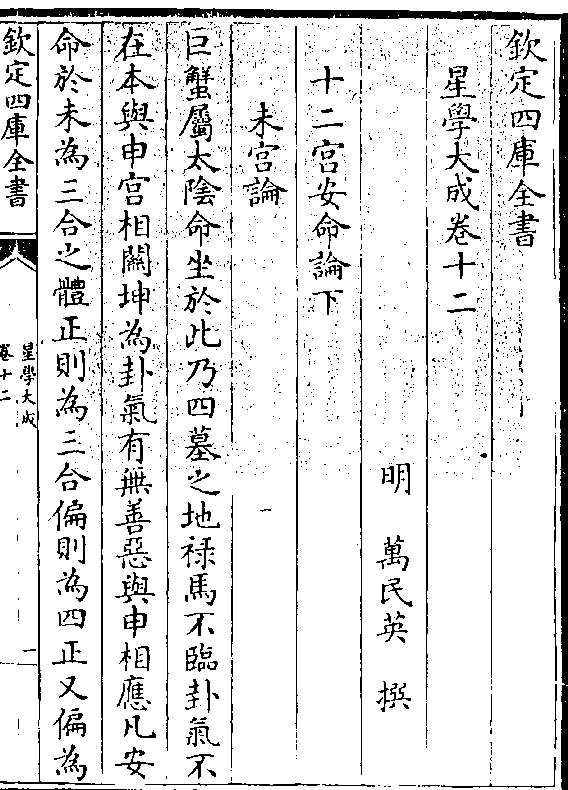 欽定四庫全書
星學大成卷十二
明 萬民英 撰
十二宮安命論下
未宮論
巨蟹屬太陰命坐於此乃四墓之地祿馬不臨卦氣不
在本與申宮相關坤為卦氣有無善惡與申相應凡安
命於未為三合之體正則為三合偏則為四正又偏為
欽定四庫全書
星學大成
卷十二
一